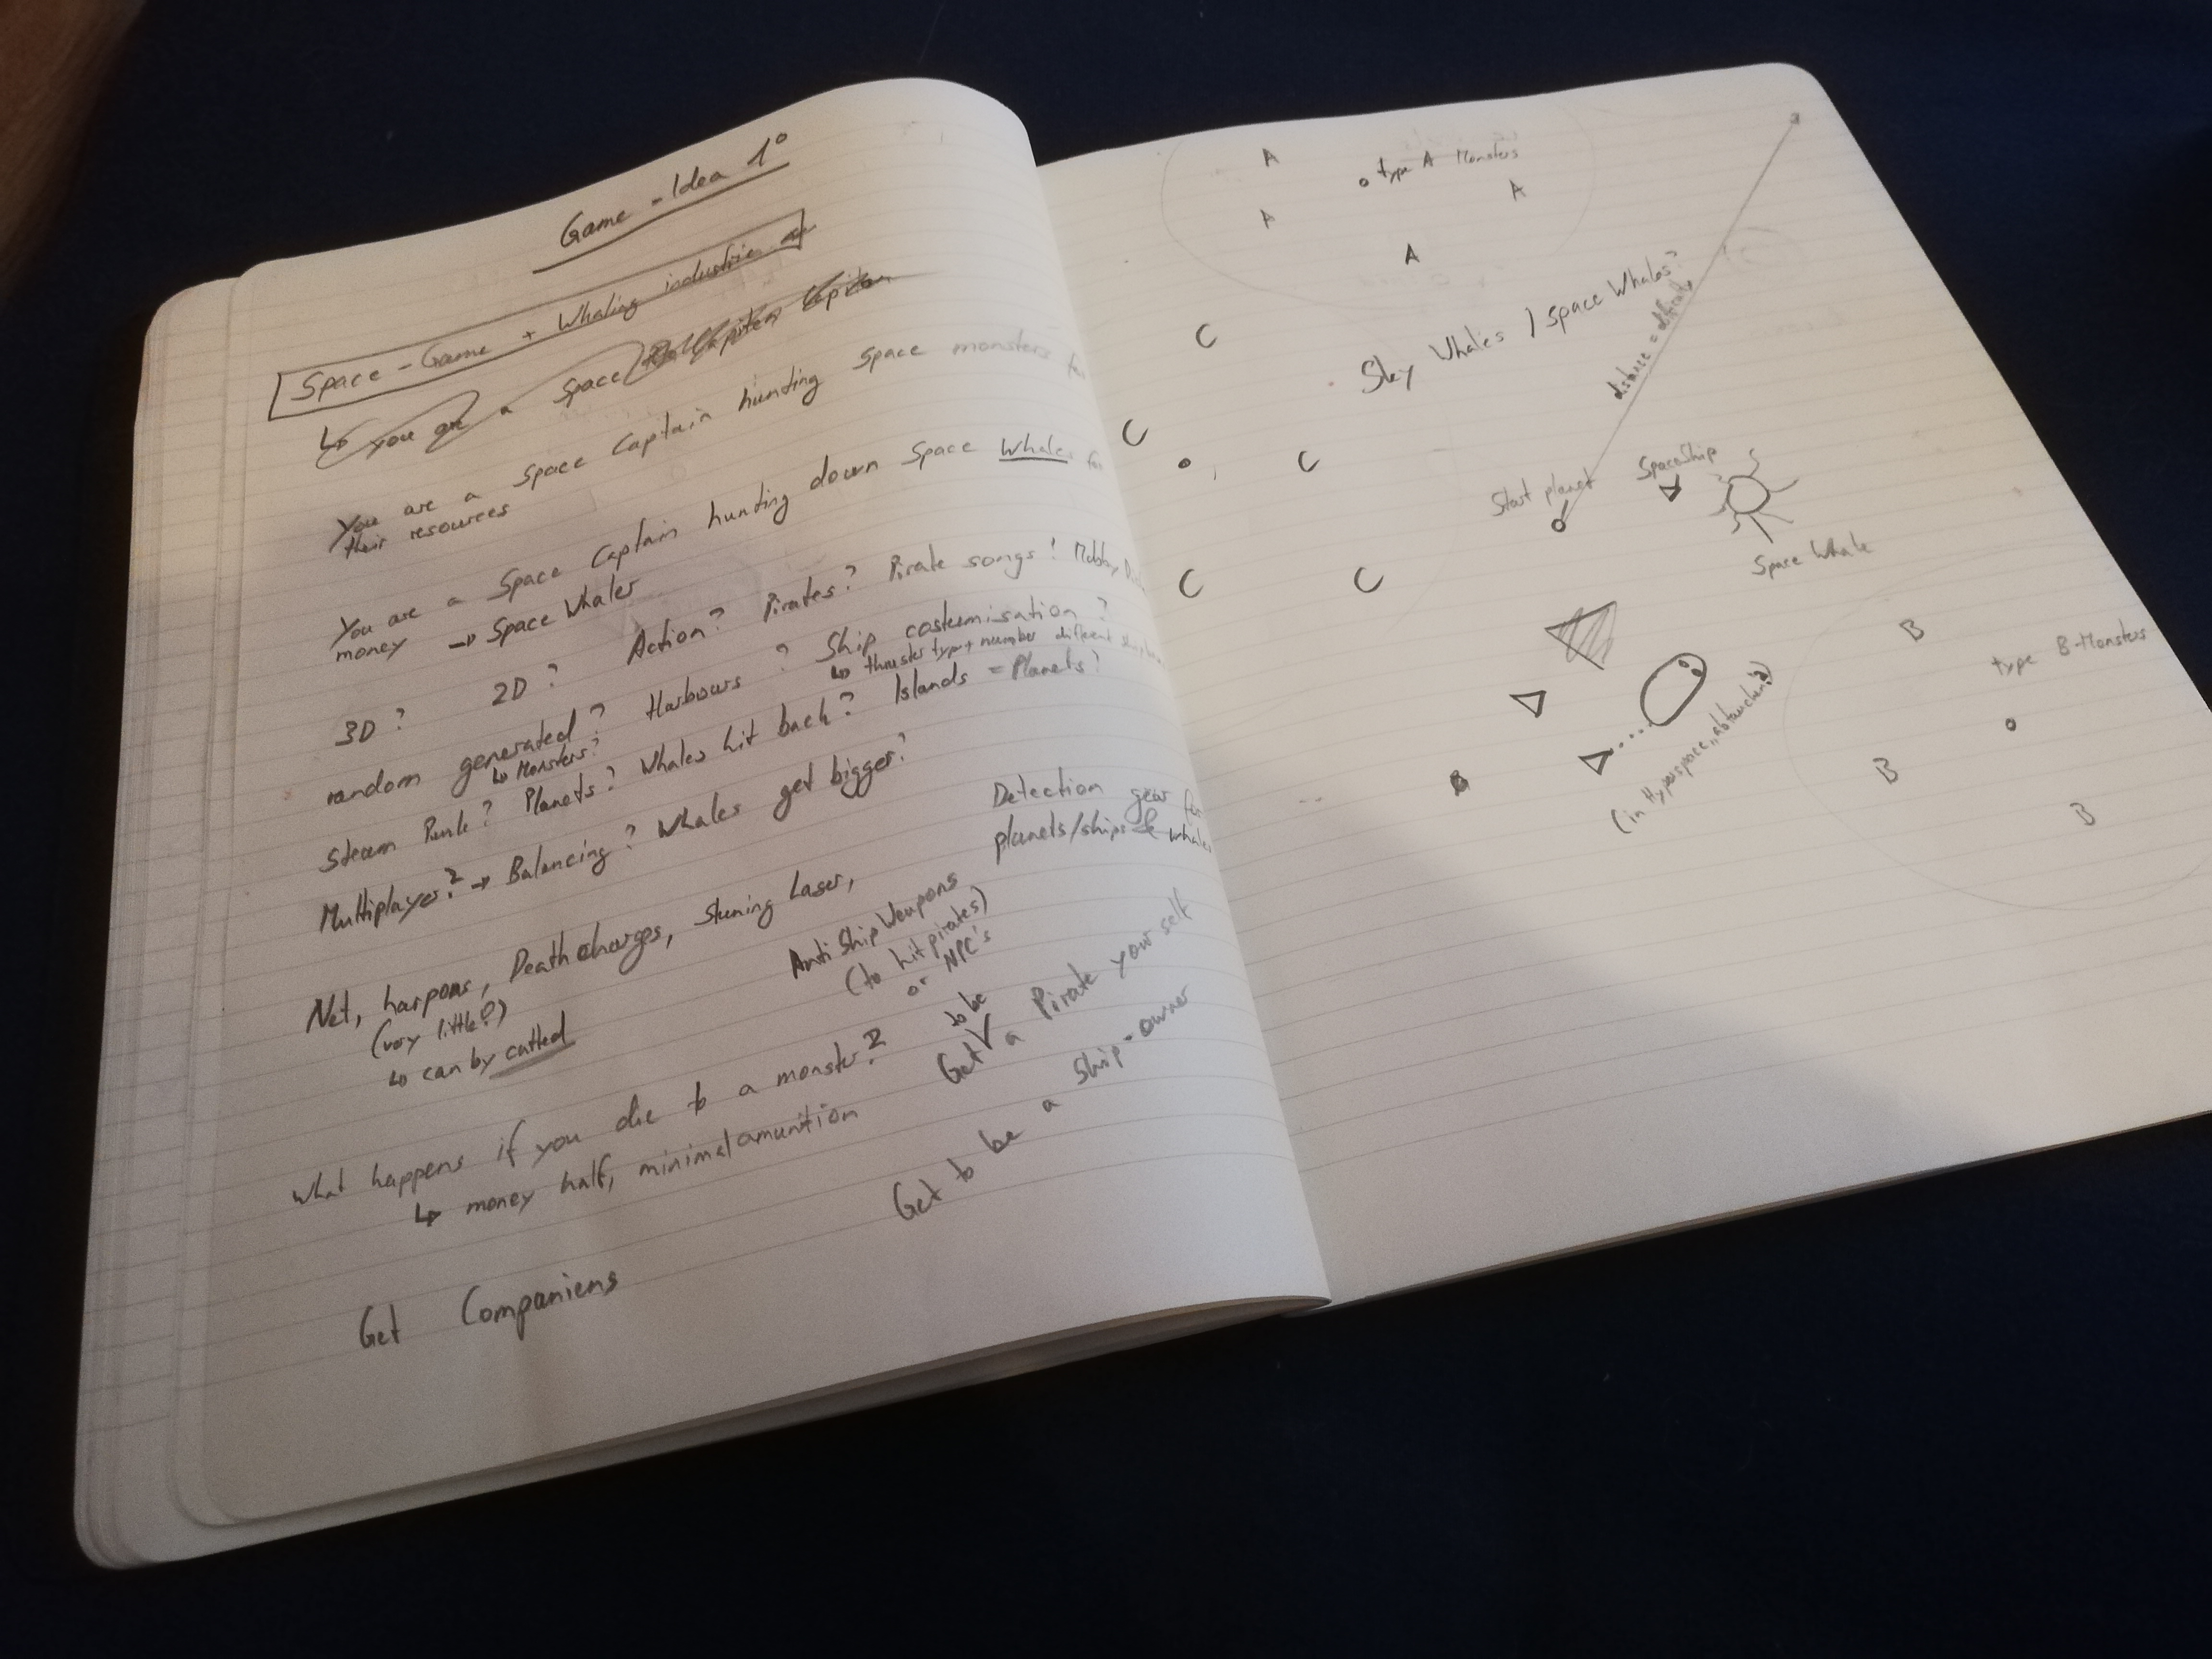 Game - Idea 1°
Space - Game + Whaling industrie
↳ you are a Space
You are a Space Captain hunting space monsters for
their resources
You are a Space Captain hunting down Space Whales for
money → Space Whaler
3D? 2D? Action? Pirates? Pirate songs! Mobby
random generated? Harbours? Ship costumisation?
↳ Monsters? ↳ thruster type + number different ship
Steam Punk? Planets? Whales hit back? Islands = Planets?
Multiplayer? → Balancing? Whales get bigger?
Detection gear for
planets/ships & whales
Net, harpons, Death charges, Stuning Laser,
(very little?)
↳ can by cutted
Anti Ship Weapons
(to hit pirates)
or NPC's
What happens if you die to a monster?
↳ money half, minimal amunition
Get to be a Pirate your self
Get to be a Ship-owner
Get Companiens
A
type A Monsters
A
A
A
Sky Whales / space Whales?
distance = difficulty
C
C
C
C
C
Start planet
SpaceShip
Space Whale
(in Hyperspace „abtauchen?)
B
type B-Monsters
B
B